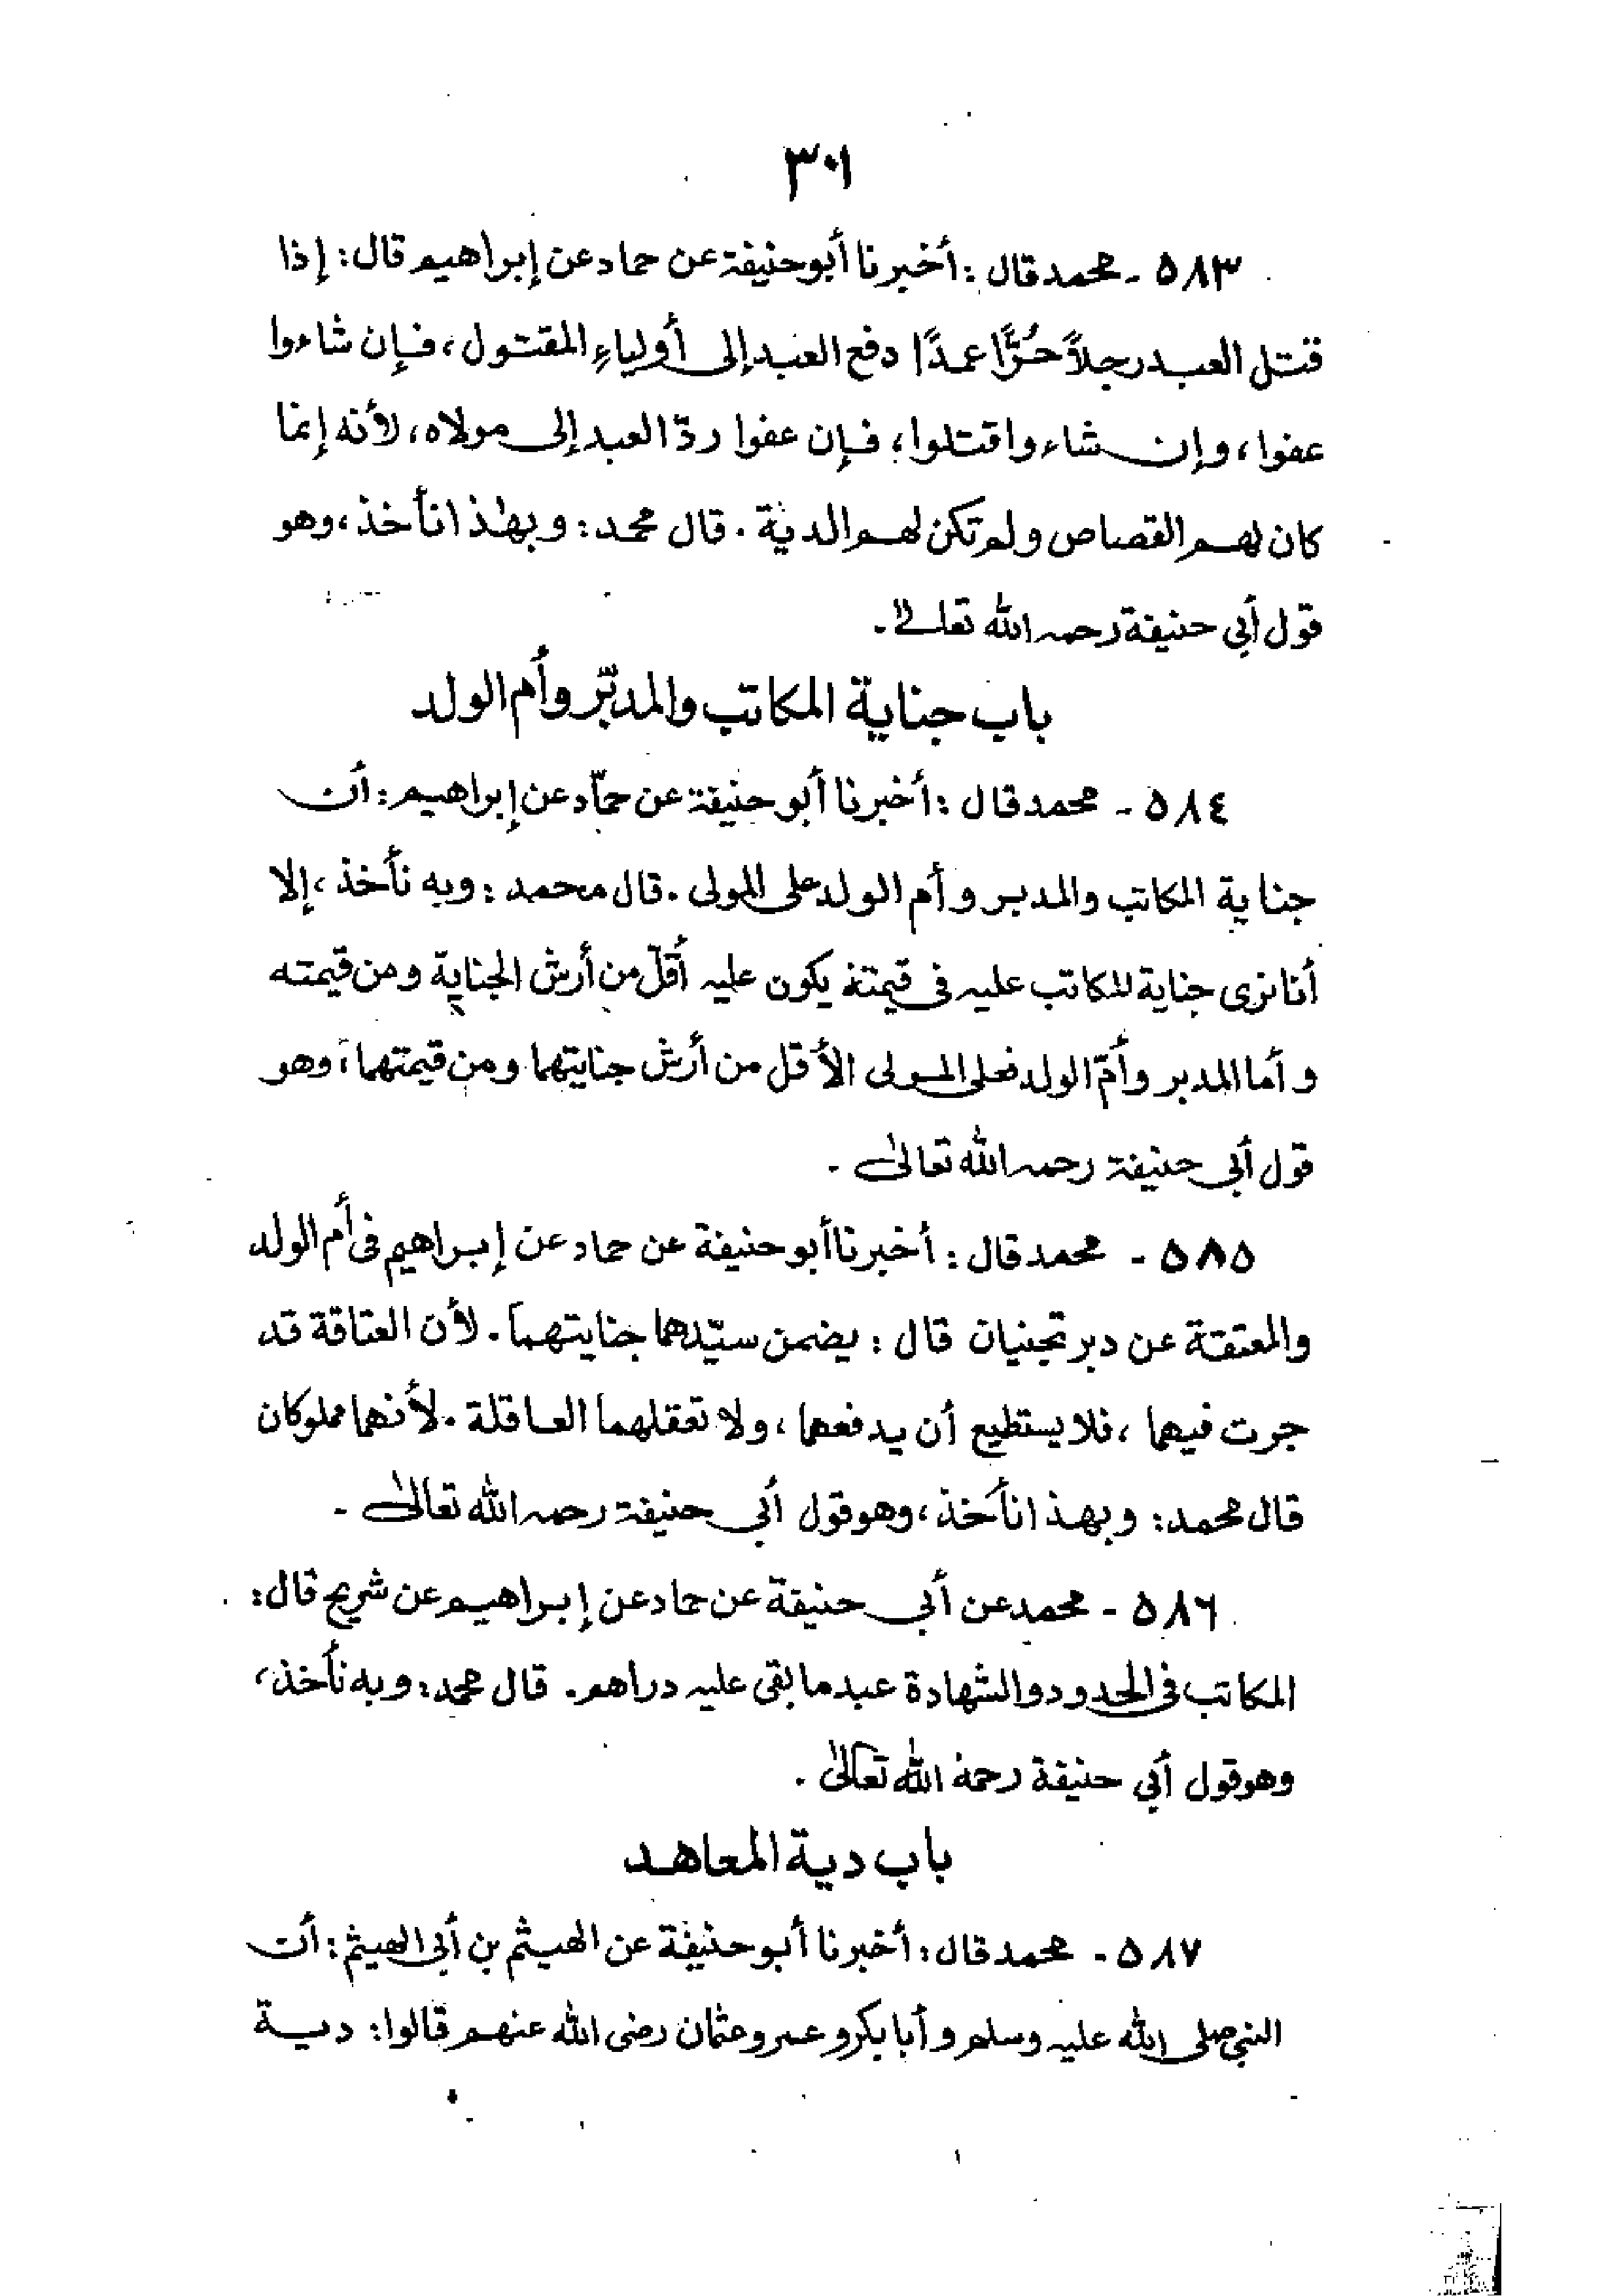 ٣٠١
٥٨٣ - محمد قال : أخبرنا أبو حنيفة عن حماد عن إبراهيم قال : إذا
قتل العبد رجلاً حُرًّا عمدًا دفع العبد إلى أولياءِ المقتول ، فإن شاءوا
عفوا ، وإن شاءوا قتلوا ، فإن عفوا ردّ العبد إلى مولاه ، لأنه إنما
كان لهم القصاص ولم تكن لهم الدية . قال محمد : وبهذا نأخذ ، وهو
قول أبي حنيفة رحمه الله تعالى .
باب جناية المكاتب والمدبّر وأم الولد
٥٨٤ - محمد قال : أخبرنا أبو حنيفة عن حمّاد عن إبراهيم : أن
جناية المكاتب والمدبر وأم الولد على المولى . قال محمد : وبه نأخذ ، إلا
أنا نرى جناية المكاتب عليه في قيمته يكون عليه أقلّ من أرش الجناية ومن قيمته
وأما المدبر وأمّ الولد فعلى المولى الأقل من أرش جنايتهما ومن قيمتهما ، وهو
قول أبي حنيفة رحمه الله تعالى .
٥٨٥ - محمد قال : أخبرنا أبو حنيفة عن حماد عن إبراهيم في أم الولد
والمعتقة عن دبر تجنيان قال : يضمن سيّدهما جنايتهما . لأن العتاقة قد
جرت فيهما ، فلا يستطيع أن يدفعهما ، ولا تعقلهما العاقلة . لأنهما مملوكان
قال محمد : وبهذا نأخذ ، وهو قول أبي حنيفة رحمه الله تعالى .
٥٨٦ - محمد عن أبي حنيفة عن حماد عن إبراهيم عن شريح قال :
المكاتب في الحدود والشهادة عبد ما بقى عليه دراهم . قال محمد : وبه نأخذ ،
وهو قول أبي حنيفة رحمه الله تعالى .
باب دية المعاهد
٥٨٧ - محمد قال : أخبرنا أبو حنيفة عن الهيثم بن أبي الهيثم : أن
النبي صلى الله عليه وسلم وأبا بكر وعمر وعثمان رضى الله عنهم قالوا : دية